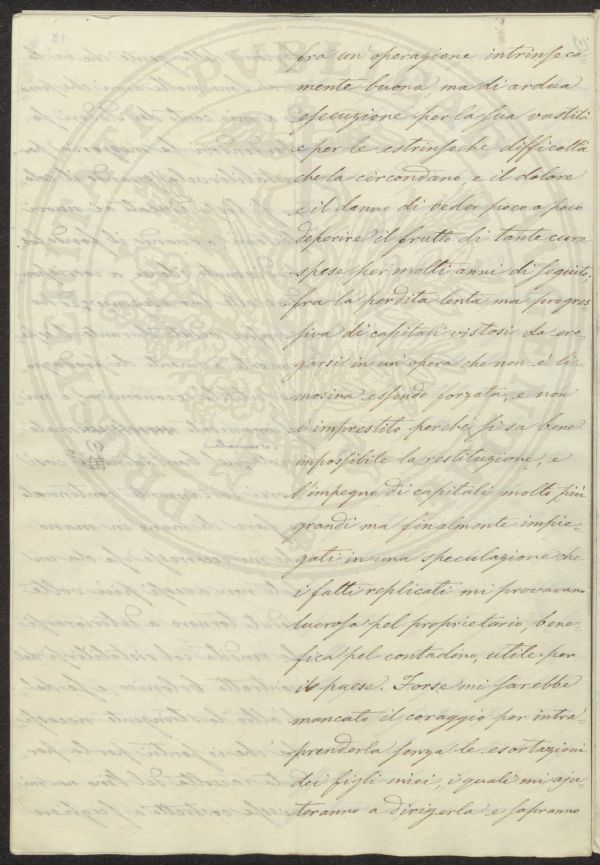 fra un' operazione intrinseca
mente buona ma di ardua
esecuzione per la sua vastità
e per le estrinseche difficoltà
che la circondano, e il dolore
e il danno di veder poco a poco
deperire il frutto di tante cure
spese per molti anni di seguito,
fra la perdita lenta ma progres-
siva di capitali vistosi da ero-
garsi in un' opera che non è li-
mosina essendo forzata, e non
è imprestito perchè si sa bene
impossibile la restituzione, e
l'impegno di capitali molto più
grandi ma finalmente impie-
gati in una speculazione che
i fatti replicati mi provavano
lucrosa pel proprietario, bene-
fica pel contadino, utile per
il paese. Forse mi sarebbe
mancato il coraggio per intra-
prenderla senza le esortazioni
dei figli miei, i quali mi aju-
teranno a dirigerla e sapranno